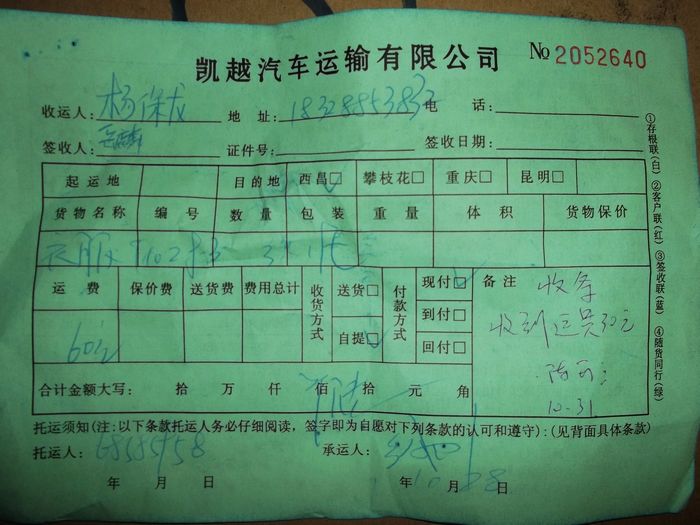 凯越汽车运输有限公司 No 2052640
收运人: 杨保成 地 址: 电 话:
签收人: 证件号: 签收日期:
起运地 目的地 西昌□ 攀枝花□ 重庆□ 昆明□
货物名称 编 号 数 量 包 装 重 量 体 积 货物保价
衣服
运 费 保价费 送货费 费用总计 收货方式 送货□ 付款方式 现付□ 备 注 收条
自提□ 到付□ 收到运费30元
60元 回付□
10.31
合计金额大写: 拾 万 仟 佰 拾 元 角
托运须知(注:以下条款托运人务必仔细阅读，签字即为自愿对下列条款的认可和遵守):(见背面具体条款)
托运人: 承运人:
年 月 日 年 10 月 28 日
①存根联(白) ②客户联(红) ③签收联(蓝) ④随货同行(绿)